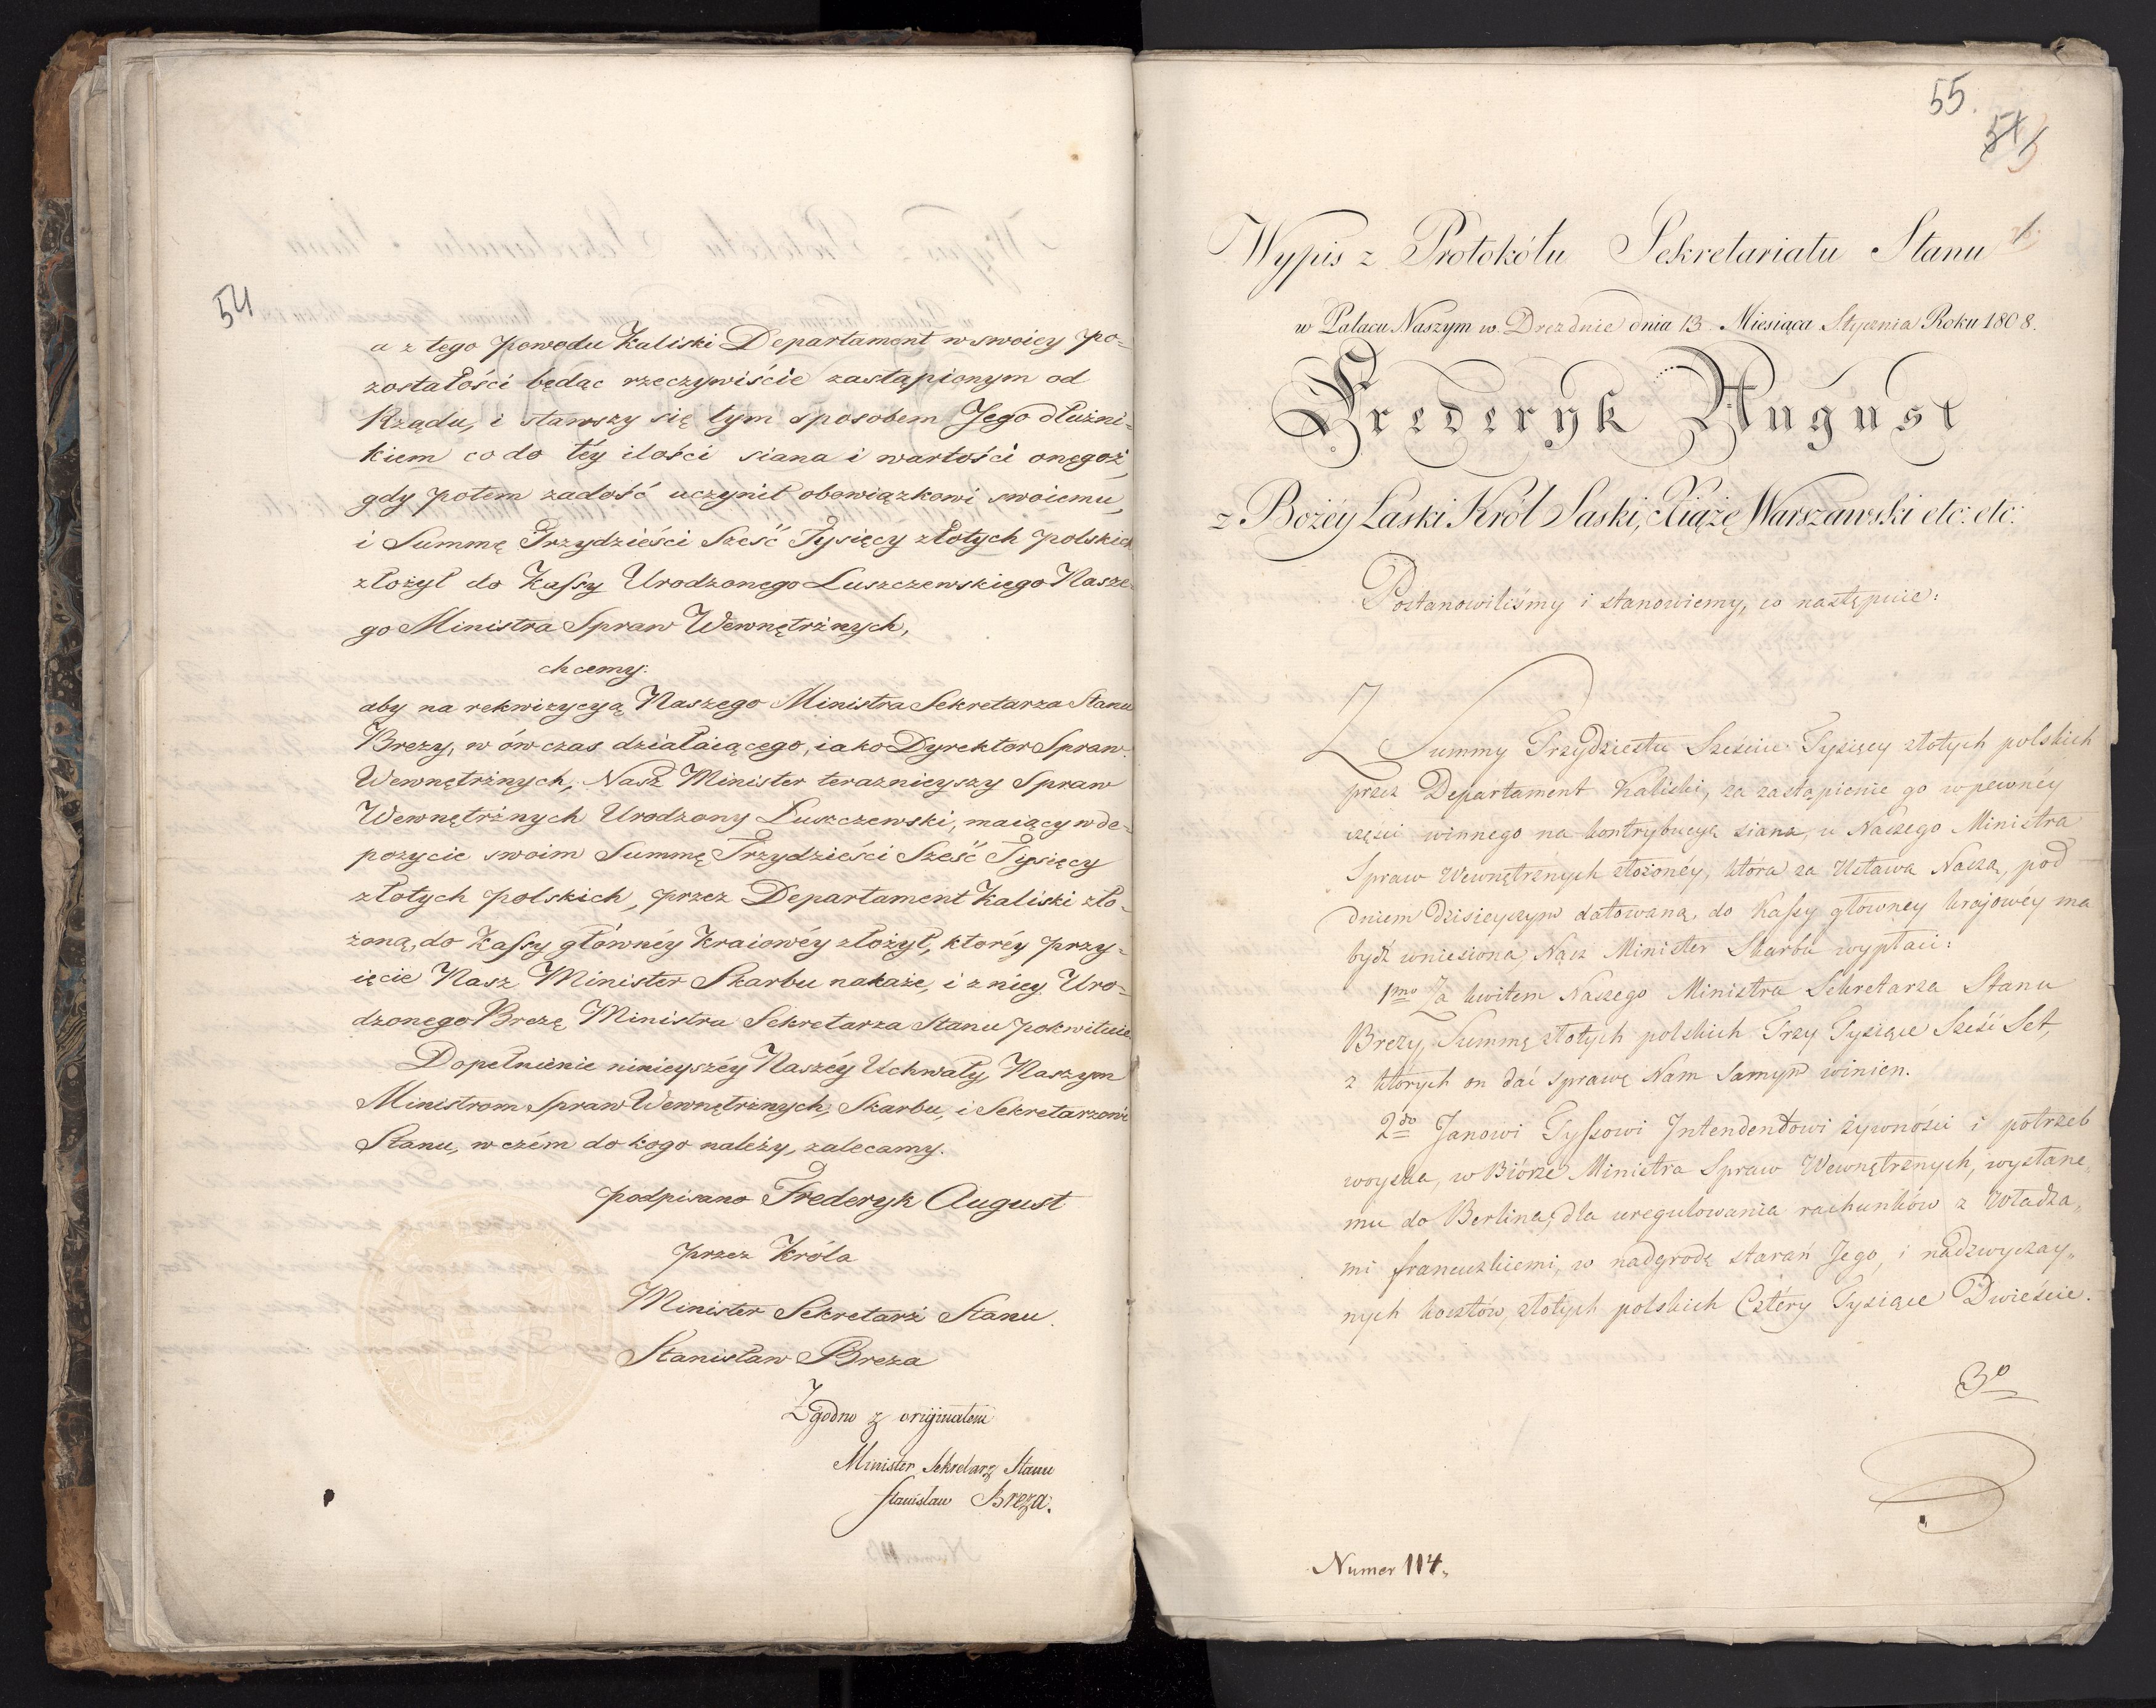 54
a z tego powodu Kaliski Departament w swoiey po=
zostałości będąc rzeczywiście zastąpionym od
Rządu, i stawszy się tym sposobem Jego dłużni=
kiem co do téy ilości siana i wartości onęgoż,
gdy potem zadość uczynił obowiązkowi swoiemu,
i Summę Trzydzieści Sześć Tysięcy złotych polskich
złożył do Kassy Urodzonego Luszczewskiego Nasze=
go Ministra Spraw Wewnętrżnych,
chcemy:
aby na rekwizycyą Naszego Ministra Sekretarza Stanu
Brezy, w ów czas działaiącego, iako Dyrektor Spraw
Wewnętrżnych, Nasz Minister teraznieyszy Spraw
Wewnętrżnych Urodzony Luszczewski, maiący w de=
pozycie swoim Summę Trzydzieści Sześć Tysięcy
złotych polskich, przez Departament Kaliski zło=
żoną, do Kassy głównéy Kraiowéy złożył, któréy przy=
ięcie Nasz Minister Skarbu nakaże, i z niey Uro=
dzonego Brezę Ministra Sekretarza Stanu pokwituie.
Dopełnienie ninieyszéy Naszéy Uchwały, Naszym
Ministrom Spraw Wewnętrżnych, Skarbu, i Sekretarzowi
Stanu, w czém do kogo należy, zalecamy.
podpisano Frederyk August
przez Króla
Minister Sekretarż Stanu.
Stanisław Breza
Zgodno z oryginałem
Minister Sekretarz Stanu
Stanisław Breza.
55.
Wypis z Protokółu Sekretariatu Stanu
w Pałacu Naszym w Dreznie dnia 13 Miesiąca Stycznia Roku 1808.
Frederyk August
z Bożéy Łaski Król Saski, Xiążę Warszawski etc: etc:
Postanowiliśmy i stanowiemy, co następuie:
Z Summy Trzydziestu Sześciu Tysięcy złotych polskich
przez Departament Kaliski, za zastąpienie go w pewnéy
części winnego na kontrybucyą siana, u Naszego Ministra
Spraw Wewnętrznych złożonéy, która za Ustawą Naszą, pod
dniem dzisieyszym datowaną, do Kassy głównéy krajowéy ma
bydź wniesiona, Nasz Minister Skarbu wypłaci:
1mo Za kwitem Naszego Ministra Sekretarza Stanu
Brezy, Summę złotych polskich Trzy Tysiące Sześć Set,
z których on dać sprawę Nam Samym winien.
2do Janowi Tyssowi Intendentowi żywności i potrzeb
woyska, w Biórze Ministra Spraw Wewnętrznych, wysłane„
mu do Berlina, dla uregulowania rachunków z Władza„
mi francuzkiemi, w nadgrodę starań Jego, i nadzwyczay„
nych kosztów, złotych polskich Cztéry Tysiące Dwieście.
3o
Numer 114.